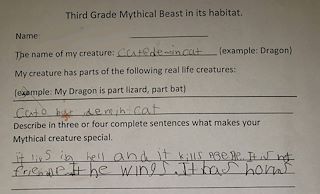 Third Grade Mythical Beast in its habitat.
Name:
The name of my creature: Catedemincat (example: Dragon)
My creature has parts of the following real life creatures:
(example: My Dragon is part lizard, part bat)
demin-cat
Describe in three or four complete sentences what makes your
Mythical creature special.
it livs in hell and it kills It is not
It he wings. It has horns